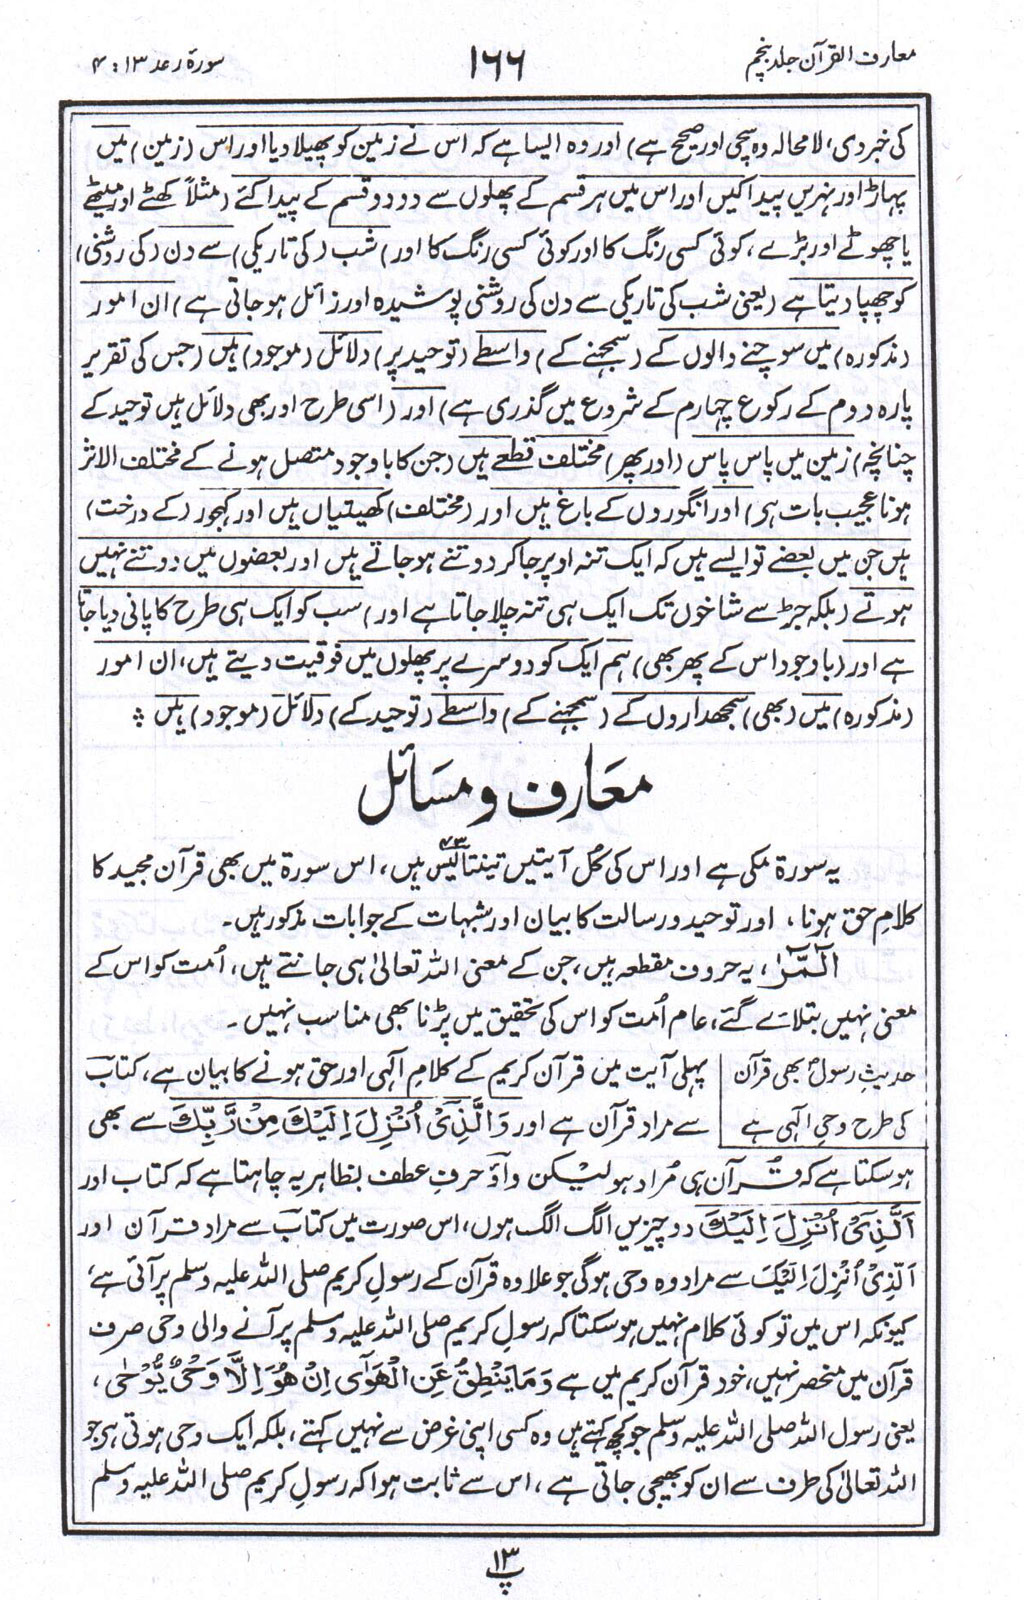 معارف القرآن جلد پنجم
۱۶۶
سورۃ رعد ۱۳ : ۴
کی خبر دی، لامحالہ وہ سچی اور صحیح ہے) اور وہ ایسا ہے کہ اس نے زمین کو پھیلا دیا اور اس (زمین) میں
پہاڑ اور نہریں پیدا کیں اور اس میں ہر قسم کے پھلوں سے دو دو قسم کے پیدا کئے (مثلاً کھٹے اور میٹھے
یا چھوٹے اور بڑے، کوئی کسی رنگ کا اور کوئی کسی رنگ کا اور) شب (کی تاریکی) سے دن (کی روشنی)
کو چھپا دیتا ہے (یعنی شب کی تاریکی سے دن کی روشنی پوشیدہ اور زائل ہو جاتی ہے) ان امور
(مذکورہ) میں سوچنے والوں کے (سمجھنے کے) واسطے (توحید پر) دلائل (موجود) ہیں (جس کی تقریر
پارہ دوم کے رکوع چہارم کے شروع میں گذری ہے) اور (اسی طرح اور بھی دلائل ہیں توحید کے
چنانچہ) زمین میں پاس پاس (اور پھر) مختلف قطعے ہیں (جن کا باوجود متصل ہونے کے مختلف الاثر
ہونا عجیب بات ہی) اور انگوروں کے باغ ہیں اور (مختلف) کھیتیاں ہیں اور کھجور (کے درخت)
ہیں جن میں بعضے تو ایسے ہیں کہ ایک تنہ اوپر جا کر دو تنے ہو جاتے ہیں اور بعضوں میں دو تنے نہیں
ہوتے (بلکہ جڑ سے شاخوں تک ایک ہی تنہ چلا جاتا ہے اور) سب کو ایک ہی طرح کا پانی دیا جاتا
ہے اور (باوجود اس کے پھر بھی) ہم ایک کو دوسرے پر پھلوں میں فوقیت دیتے ہیں، ان امور
(مذکورہ) میں (بھی) سمجھداروں کے (سمجھنے کے) واسطے (توحید کے) دلائل (موجود) ہیں ؞
معارف و مسائل
یہ سورۃ مکی ہے اور اس کی کل آیتیں تینتالیس۴۳ ہیں، اس سورۃ میں بھی قرآن مجید کا
کلامِ حق ہونا، اور توحید و رسالت کا بیان اور شبہات کے جوابات مذکور ہیں۔
الٓمّٓرٰ، یہ حروف مقطعہ ہیں، جن کے معنی اللہ تعالیٰ ہی جانتے ہیں، اُمت کو اس کے
معنی نہیں بتلائے گئے، عام اُمت کو اس کی تحقیق میں پڑنا بھی مناسب نہیں۔
حدیثِ رسولؐ بھی قرآن
کی طرح وحی الٰہی ہے
پہلی آیت میں قرآن کریم کے کلامِ الٰہی اور حق ہونے کا بیان ہے، کتاب
سے مراد قرآن ہے اور وَالَّذِیْٓ اُنْزِلَ اِلَیْکَ مِنْ رَّبِّکَ سے بھی
ہو سکتا ہے کہ قرآن ہی مراد ہو لیکن واؤ حرفِ عطف بظاہر یہ چاہتا ہے کہ کتاب اور
اَلَّذِیْٓ اُنْزِلَ اِلَیْکَ دو چیزیں الگ الگ ہوں، اس صورت میں کتاب سے مراد قرآن اور
اَلَّذِیْٓ اُنْزِلَ اِلَیْکَ سے مراد وہ وحی ہوگی جو علاوہ قرآن کے رسول کریم صلی اللہ علیہ وسلم پر آئی ہے،
کیونکہ اس میں تو کوئی کلام نہیں ہو سکتا کہ رسول کریم صلی اللہ علیہ وسلم پر آنے والی وحی صرف
قرآن میں منحصر نہیں، خود قرآن کریم میں ہے وَمَا یَنْطِقُ عَنِ الْھَوٰی اِنْ ھُوَ اِلَّا وَحْیٌ یُّوْحٰی،
یعنی رسول اللہ صلی اللہ علیہ وسلم جو کچھ کہتے ہیں وہ کسی اپنی غرض سے نہیں کہتے، بلکہ ایک وحی ہوتی ہی جو
اللہ تعالیٰ کی طرف سے ان کو بھیجی جاتی ہے، اس سے ثابت ہوا کہ رسول کریم صلی اللہ علیہ وسلم
پ ۱۳